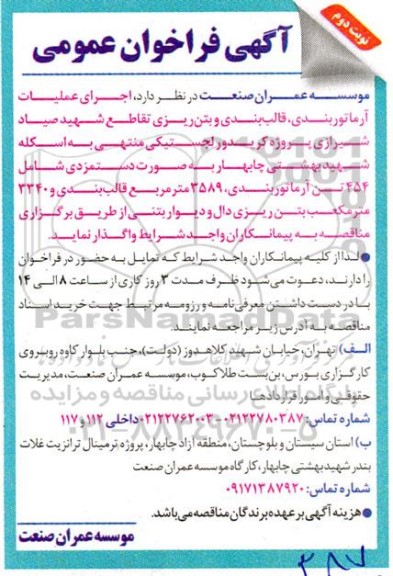 نوبت دوم
آگهی فراخوان عمومی
موسسه عمران صنعت در نظر دارد، اجرای عملیات
آرماتوربندی، قالب‌بندی و بتن‌ریزی تقاطع شهید صیاد
شیرازی پروژه کریدور لجستیکی منتهی به اسکله
شهید بهشتی چابهار به صورت دستمزدی شامل
۴۵۴ تن آرماتوربندی، ۳۵۸۹ متر مربع قالب‌بندی و ۳۳۴۰
متر مکعب بتن‌ریزی دال و دیوار بتنی از طریق برگزاری
مناقصه به پیمانکاران واجد شرایط واگذار نماید.
● لذا از کلیه پیمانکاران واجد شرایط که تمایل به حضور در فراخوان
را دارند، دعوت می‌شود ظرف مدت ۳ روز کاری از ساعت ۸ الی ۱۴
با در دست داشتن معرفی‌نامه و رزومه مرتبط جهت خرید اسناد
مناقصه به آدرس زیر مراجعه نمایند.
الف) تهران، خیابان شهید کلاهدوز (دولت)، جنب بلوار کاوه روبروی
کارگزاری بورس، بن‌بست طلاکوب، موسسه عمران صنعت، مدیریت
حقوقی و امور قراردادها
شماره تماس: ۰۲۱۲۲۷۸۰۳۸۷-۰۲۱۲۲۷۶۲۰۰۳ داخلی ۱۱۲ و ۱۱۷
ب) استان سیستان و بلوچستان، منطقه آزاد چابهار، پروژه ترمینال ترانزیت غلات
بندر شهید بهشتی چابهار، کارگاه موسسه عمران صنعت
شماره تماس: ۰۹۱۷۱۳۸۷۹۲۰
● هزینه آگهی بر عهده برندگان مناقصه می‌باشد.
موسسه عمران صنعت
۳۸۷
ParsNamadData
پایگاه اطلاع رسانی مناقصه و مزایده
۰۲۱-۸۸۳۴۹۶۷۰-۵